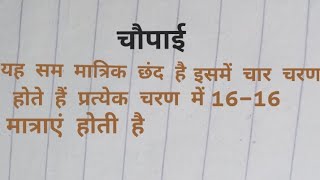 चौपाई
यह सम मात्रिक छंद है इसमें चार चरण
होते हैं प्रत्येक चरण में 16-16
मात्राएं होती है